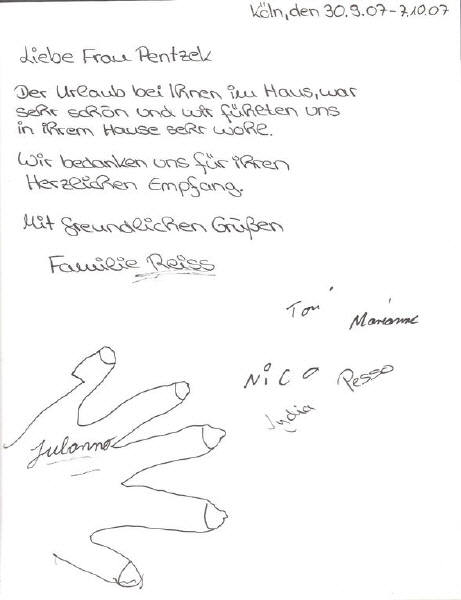 Köln, den 30.9.07-7.10.07
Liebe Frau Pentzek
Der Urlaub bei Ihnen im Haus, war
sehr schön und wir fühlten uns
in ihrem Hause sehr wohl.
Wir bedanken uns für ihren
Herzlichen Empfang.
Mit freundlichen Grüßen
Familie Reiss
Marianne
NiCO Pesso